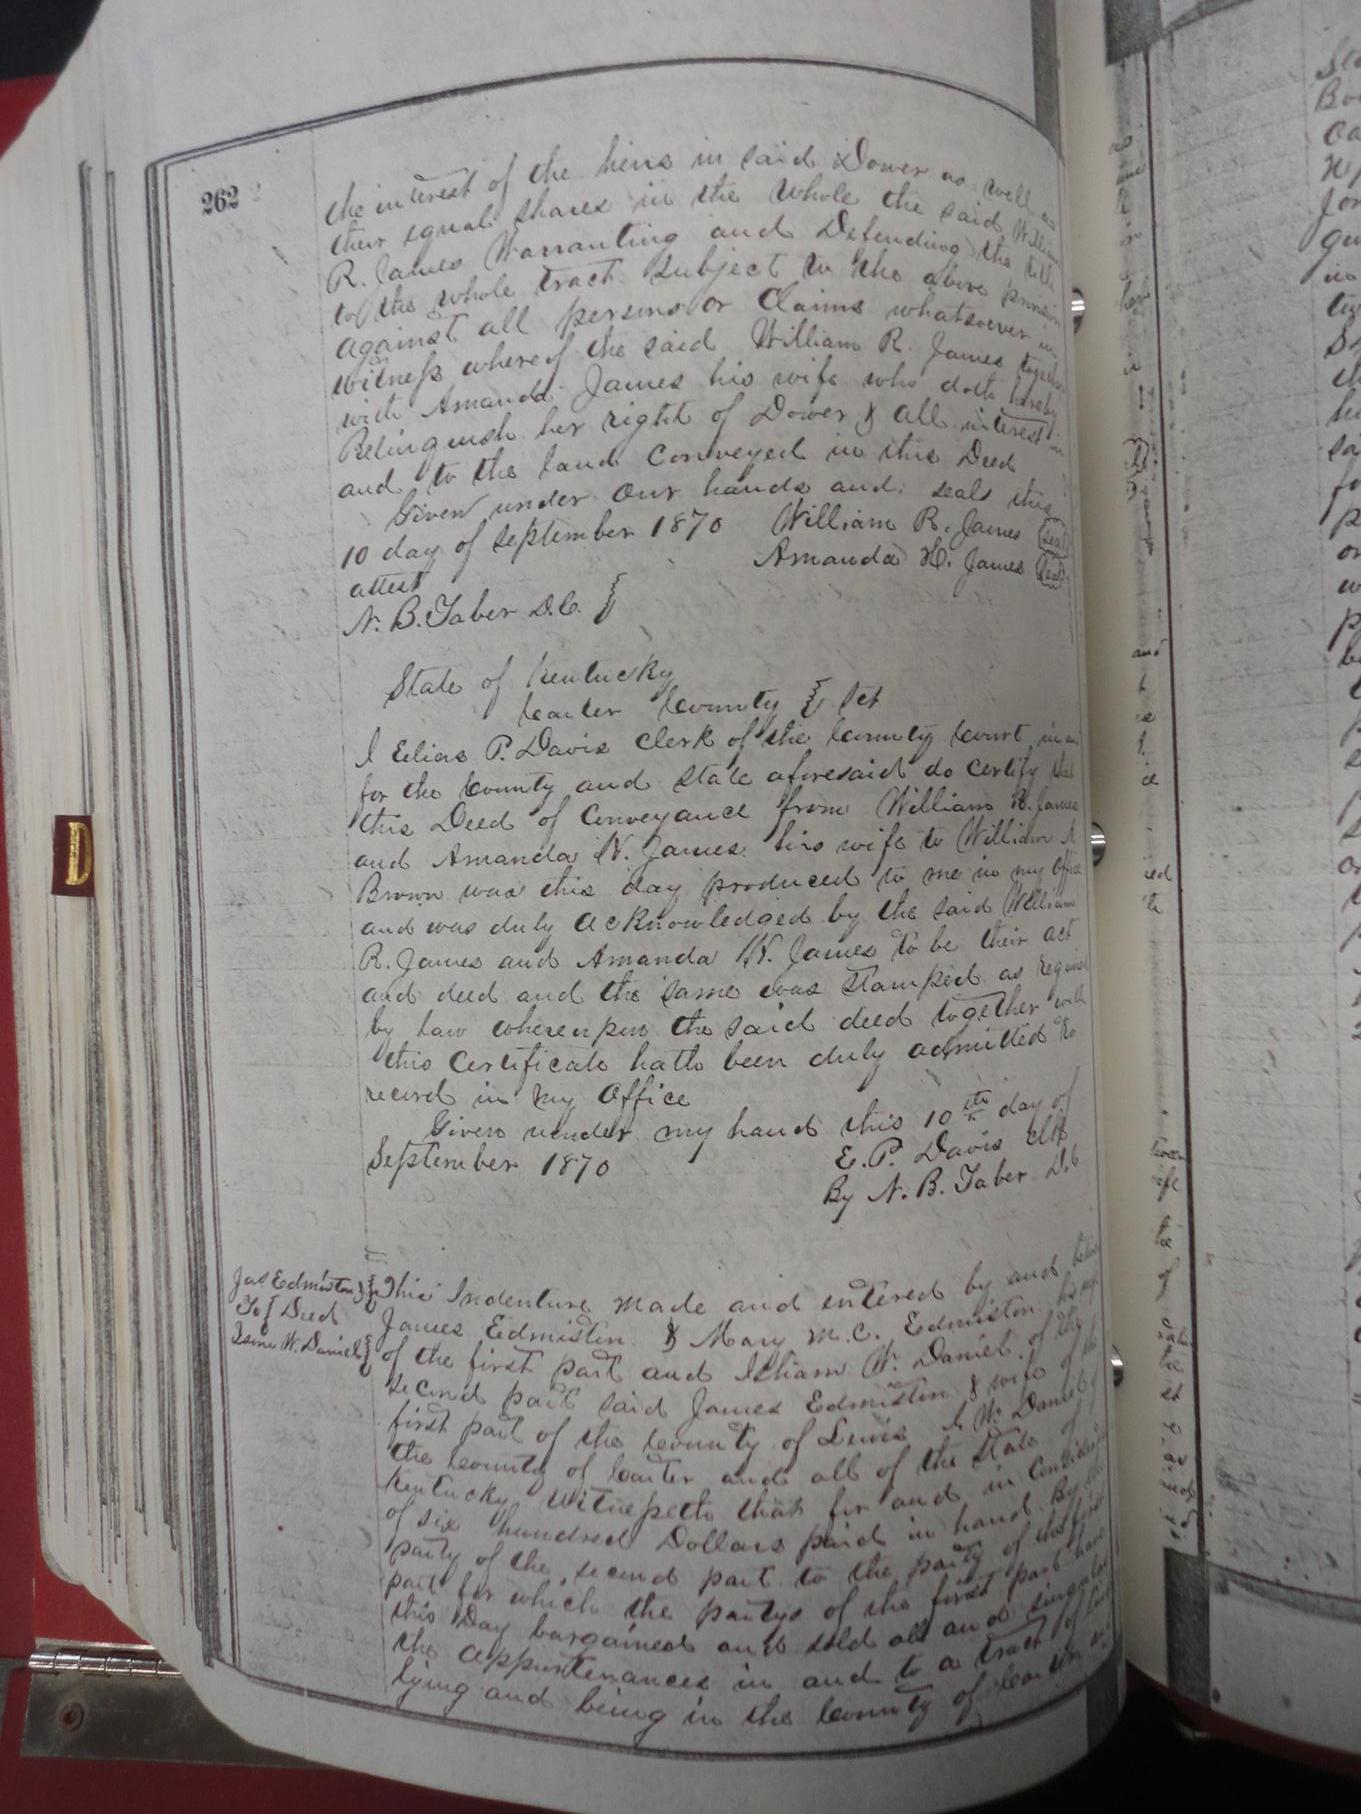 262
the interest of the heirs in said Dower as well as
their equal shares in the whole the said William
R. James Warranting and Defending the title
to the whole tract subject to the above provision
against all persons or Claims whatsoever in
witness whereof the said William R. James together
with Amanda James his wife who doth hereby
Relinquish her right of Dower & all interest in
and to the land Conveyed in this Deed
Given under our hands and seals this
10 day of September 1870 William R. James (seal)
Amanda H. James (seal)
attest
N. B. Taber D.C. }
State of Kentucky
Carter County } Sct
I Elias P. Davis Clerk of the County Court in and
for the County and State aforesaid do certify that
this Deed of Conveyance from William R. James
and Amanda H. James his wife to William
Brown was this day produced to me in my office
and was duly acknowledged by the said William
R. James and Amanda H. James to be their act
and deed and the same was Stamped as required
by law whereupon the said deed together with
this Certificate hath been duly admitted to
record in my Office
Given under my hand this 10th day of
September 1870 E. P. Davis Clk
By N. B. Taber D.C
Jas Edmiston }
To { Deed
W. Daniel }
This Indenture made and entered by and between
James Edmiston & Mary M. C. Edmiston his wife
of the first part and W. Daniel of the
second part said James Edmiston & wife of the
first part of the County of Lewis & W. Daniel of
the County of Carter and all of the State of
Kentucky Witnesseth that for and in Consideration
of six hundred Dollars paid in hand By the
party of the second part to the party of the first
part for which the partys of the first part have
this Day bargained and sold all and singular
the appurtenances in and to a tract of land
lying and being in the County of Carter
D